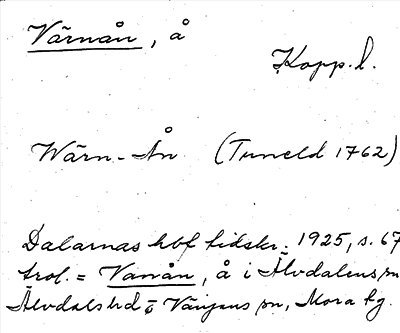 Värnån, å
Kopp. l.
Wärn-Ån (Tuneld 1762)
Dalarnas hbf tidskr. 1925, s. 67
trol. = Vanån, å i Älvdalens sn
Älvdals hd o Vänjans sn, Mora tg.